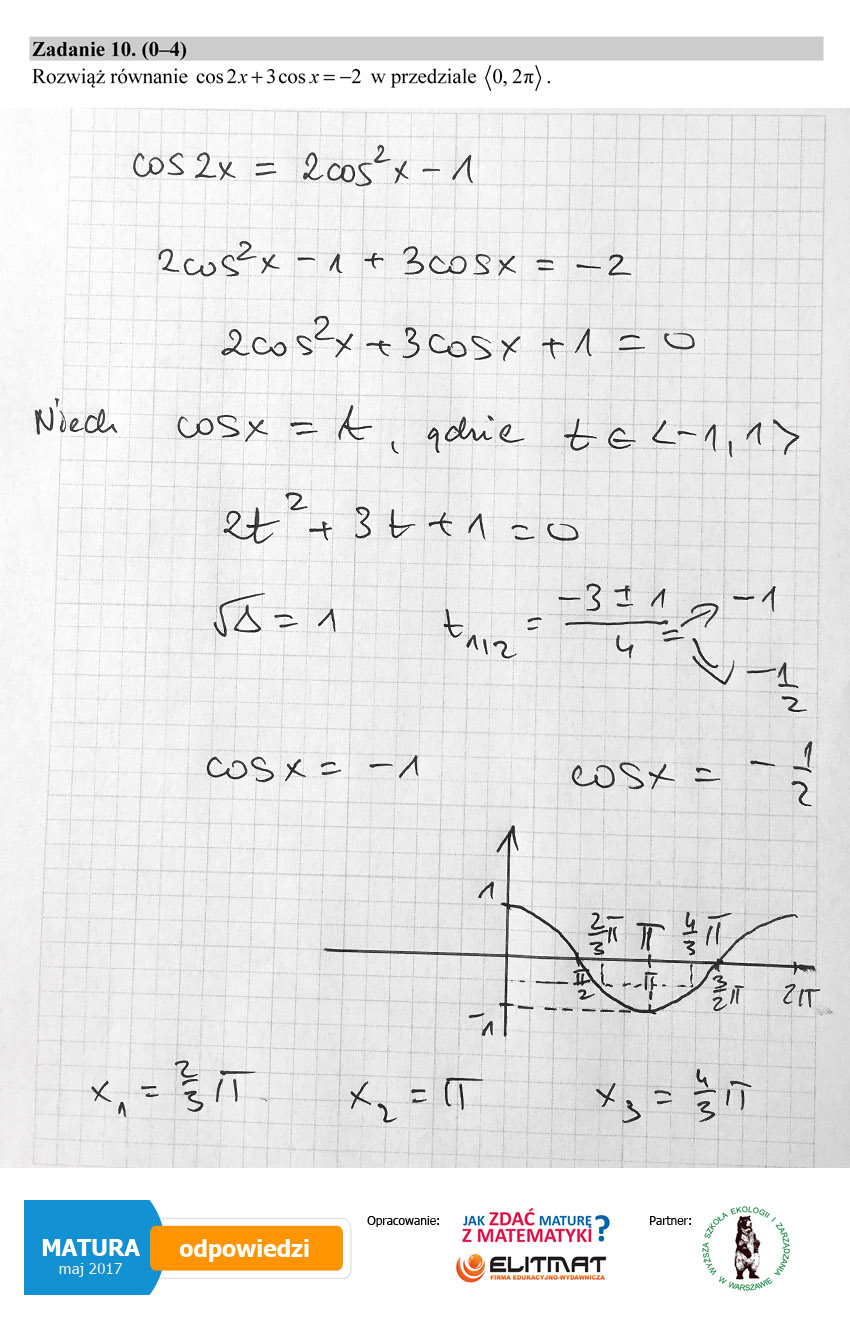 Zadanie 10. (0–4)
Rozwiąż równanie cos 2x + 3cos x = −2 w przedziale ⟨0, 2π⟩.
cos 2x = 2cos²x − 1
2cos²x − 1 + 3cosx = −2
2cos²x + 3cosx + 1 = 0
Niech cosx = t, gdzie t ∈ <−1, 1>
2t² + 3t + 1 = 0
√Δ = 1 t₁/₂ = (−3 ± 1)/4 = ↗ −1 ↘ −1/2
cosx = −1 cosx = −1/2
1
2/3 π π 4/3 π
π/2 π 3/2 π 2π
−1
x₁ = 2/3 π x₂ = π x₃ = 4/3 π
MATURA
maj 2017
odpowiedzi
Opracowanie:
JAK ZDAĆ MATURĘ
Z MATEMATYKI?
ELITMAT
FIRMA EDUKACYJNO-WYDAWNICZA
Partner:
WYŻSZA SZKOŁA EKOLOGII I ZARZĄDZANIA
W WARSZAWIE